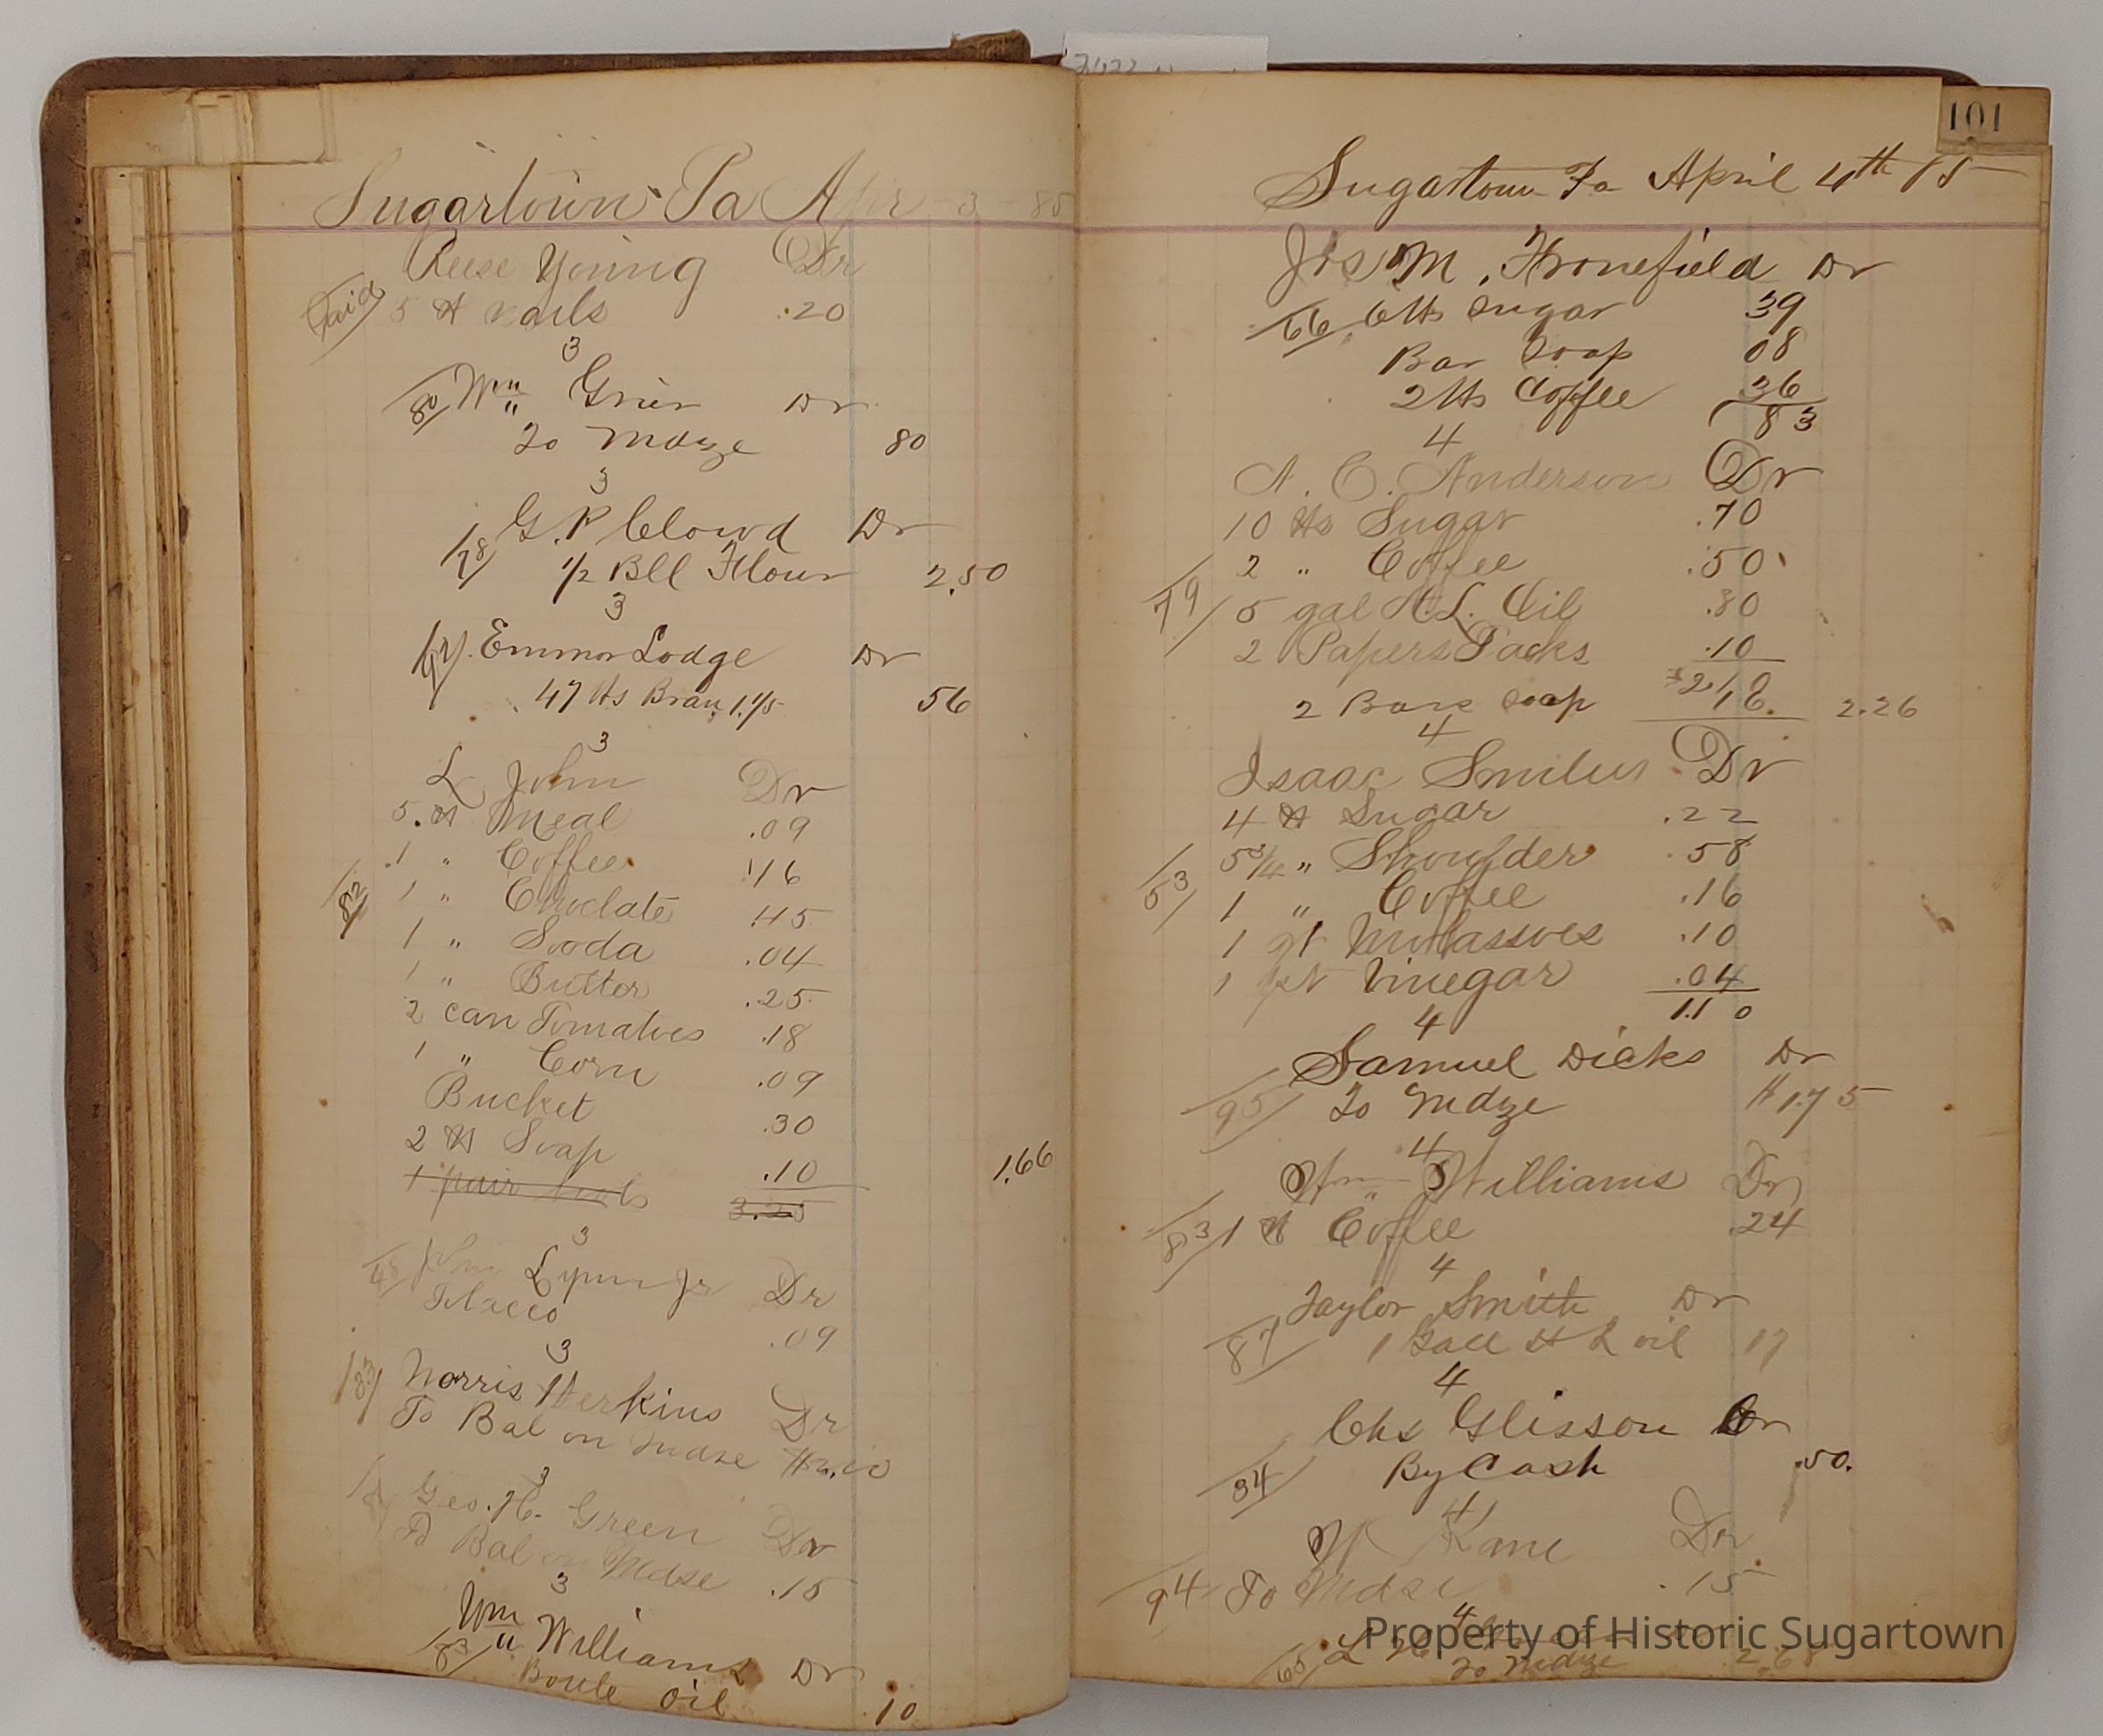 Sugartown Pa Apr - 3 - 85
Reese Young Dr
Paid 5 lb nails .20
3
80 Wm Grier Dr
To Mdze 80
3
78 G. P. Clowd Dr
1/2 Bll Flour 2.50
3
Emma Lodge Dr
47 lbs Bran 1.1/5 56
3
L John Dr
5. lb Meal .09
1 " Coffee .16
82 1 " Choclate .45
1 " Sooda .04
1 " Butter .25
2 can Tomatoes .18
1 " Corn .09
Bucket .30
2 lb Soap .10 1.66
1 pair 3.25
3
48 John Lynn Jr Dr
Tobacco .09
3
33 Norris Herkins Dr
To Bal on Mdse
3
Geo. H. Green Dr
To Bal on Mdse .15
3
Wm Williams Dr
83 Botle Oil .10
101
Sugartown Pa April 4th 85
Jos M. Fronefield Dr
66 6 lbs Sugar 39
Bar Soap 08
2 lbs Coffee 36
83
4
N. C. Anderson Dr
10 lbs Sugar .70
2 " Coffee .50
79 5 gal H.L. Oil .80
2 Papers Tacks .10
2 Bars soap 2.18. 2.26
4
Isaac Smiley Dr
4 lb Sugar .22
5 3/4 " Shoulder .58
53 1 " Coffee .16
1 qt Mollassoes .10
1 pt Vinegar .04
1.10
4
Samuel Dicks Dr
95 To Mdze $1.75
4
Wm Williams Dr
83 1 lb Coffee .24
4
Taylor Smith Dr
87 1 Gall H L oil 17
4
Chs Glisson Cr
34 By Cash .50.
4
W Kane Dr
94 To Mdse .15
4
65 L
To Mdze 2.68
Property of Historic Sugartown